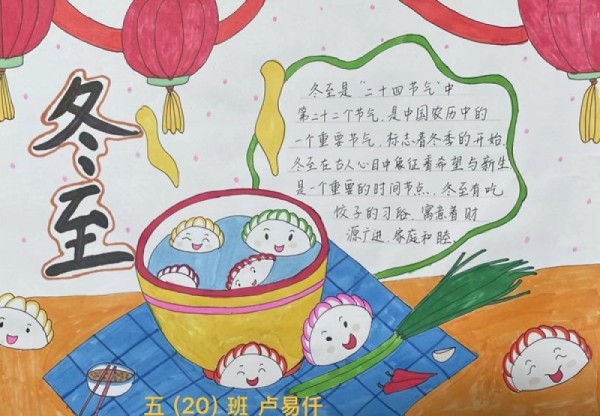 冬至
冬至是“二十四节气”中
第二十二个节气.是中国农历中的
一个重要节气.标志着冬季的开始.
冬至在古人心目中象征着希望与新生
是一个重要的时间节点.冬至有吃
饺子的习俗.寓意着财
源广进.家庭和睦.
五(20)班 卢易仟